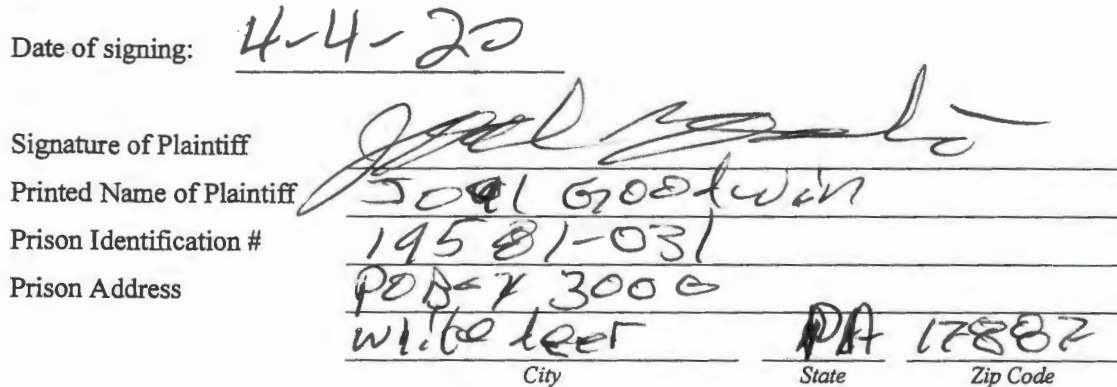 Date of signing: 4-4-20
Signature of Plaintiff
Printed Name of Plaintiff Joel Goodwin
Prison Identification # 19581-031
Prison Address PO Box 3000
White deer PA 17887
City State Zip Code